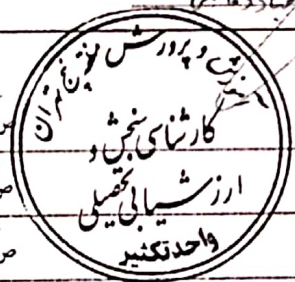 آموزش و پرورش
تهران
کارشناسی سنجش و
ارزشیابی تحصیلی
واحد تکثیر
ص
ص
ص